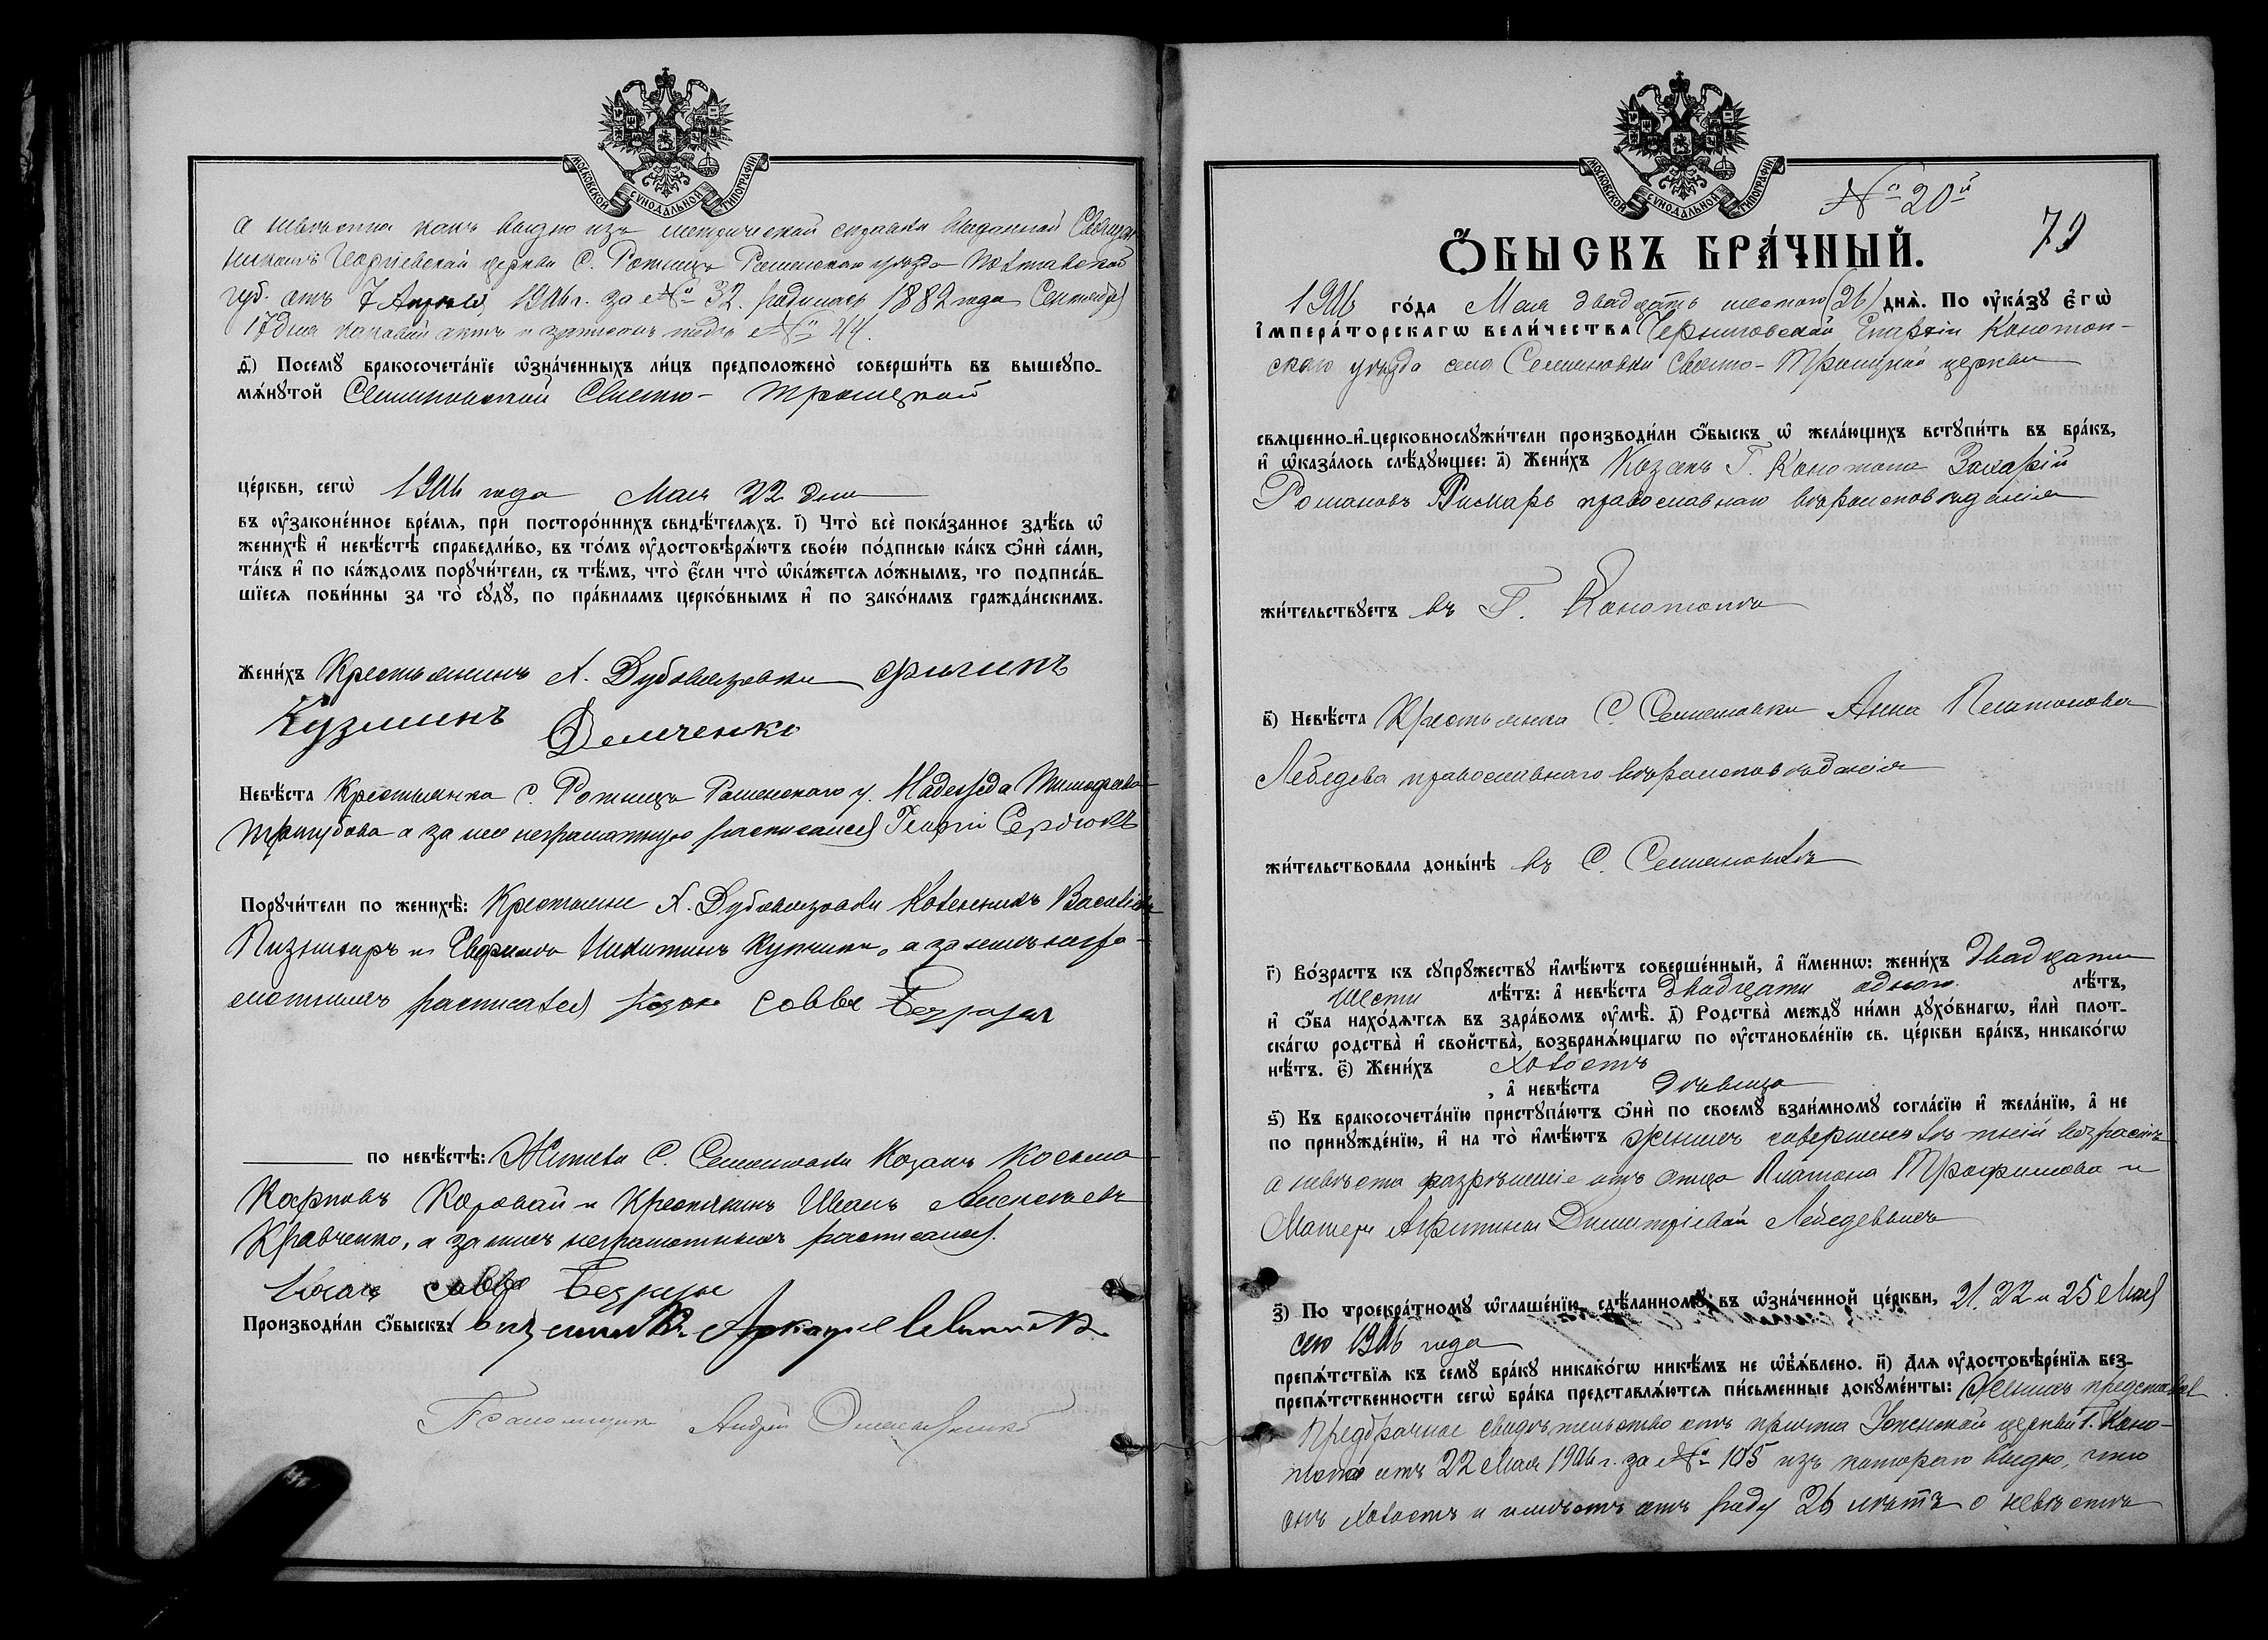 МОСКОВСКОЙ СѴНОДАЛЬНОЙ ТИПОГРАФІИ
а невѣста какъ видно изъ метрической справки выданной Священ
никомъ Георгіевской церкви С. Ротища Роменскаго уѣзда Полтавской
губ. отъ 7 Апрѣля 1906 г. за № 32. родилась 1882 года Сентября
17 дня каковый актъ и записанъ подъ № 44.
д҃) Посемꙋ̀ бракосочета́нїе ѡ҆зна́ченныхъ ли́цъ предположено̀ соверши́ть въ вышеꙋпо-
мѧ́нꙋтой Семеновской Свято- Троицкой
це́ркви, сегѡ̀ 1906 года Мая 22 дня
въ ᲂу҆законе́нное вре́мѧ, при посторо́ннихъ свидѣ́телѧхъ. і҃) Что̀ всѐ пока́занное здѣ́сь ѡ҆
женихѣ̀ и҆ невѣ́стѣ справедли́во, въ то́мъ ᲂу҆достовѣрѧ́ютъ свое́ю по́дписью ка́къ ѻ҆нѝ са́ми,
та́къ и҆ по ка́ждомъ порꙋчи́тели, съ тѣ́мъ, что̀ є҆́сли что̀ ѡ҆ка́жетсѧ ло́жнымъ, то подписа́в-
шїесѧ пови́нны за то̀ сꙋдꙋ̀, по пра́виламъ церко́внымъ и҆ по зако́намъ гражда́нскимъ.
Жени́хъ Крестьянинъ Х. Дубовязовки Филипъ
Кузминъ Демченко
Невѣ́ста Крестьянка С. Ротища Роменскаго у. Надежда Тимофеева
Тризубова а за нее неграмотную расписался Георгій Сердюкъ
Порꙋчи́тели по женихѣ̀: Крестьяне Х. Дубовязовки Василій
и Никитинъ а за нихъ негра-
мотныхъ расписался Савва
по невѣ́стѣ: Жители С. Семеновки Козакъ Косьма
Карповъ Коровай и Крестянинъ Иванъ Алексѣевъ
Кравченко, а за нихъ неграмотныхъ расписался
Козакъ Савва
Производи́ли ѻ҆́быскъ: Священникъ
Псаломщикъ Андрей
МОСКОВСКОЙ СѴНОДАЛЬНОЙ ТИПОГРАФІИ
№ 20й
79
Ѻ҆́БЫСКЪ БРА́ЧНЫЙ.
1906 го́да Мая двадцать шестого (26) днѧ̀. По ᲂу҆ка́зꙋ є҆гѡ̀
і҆мпера́торскагѡ вели́чества Черниговской Епархіи Конотоп-
скаго уѣзда села Семеновки Свято-Троицкой церкви
свѧщенно-и҆-церковнослꙋжи́тели производи́ли ѻ҆́быскъ ѡ҆ жела́ющихъ встꙋпи́ть въ бра́къ,
и҆ ѡ҆каза́лось слѣ́дꙋющее: а҃) Жени́хъ Козакъ Г. Конотопа Захарій
Романовъ Римарь православнаго вѣроисповѣданія
жи́тельствꙋетъ въ Г. Конотопѣ
в҃) Невѣ́ста Крестьянка С. Семеновки Анна Платонова
Лебедева православнаго вѣроисповѣданія
жи́тельствовала доны́нѣ въ С. Семеновкѣ
г҃) Во́зрастъ къ сꙋпрꙋ́жествꙋ и҆мѣ́ютъ соверше́нный, а҆ и҆́меннѡ: жени́хъ двадцати
шести лѣ́тъ: а҆ невѣ́ста двадцати одного лѣ́тъ,
и҆ ѻ҆́ба нахо́дѧтсѧ въ здра́вомъ ᲂу҆мѣ̀. д҃) Родства̀ междꙋ̀ ни́ми дꙋхо́внагѡ, и҆лѝ плот-
ска́гѡ родства̀ и҆ свойства̀, возбранѧ́ющагѡ по ᲂу҆становле́нїю св. це́ркви бра́къ, никако́гѡ
нѣ́тъ. є҃) Жени́хъ холостъ
, а҆ невѣ́ста дѣвица
ѕ҃) Къ бракосочета́нїю пристꙋпа́ютъ ѻ҆нѝ по своемꙋ̀ взаи́мномꙋ согла́сїю и҆ жела́нїю, а҆ не
по принꙋжде́нїю, и҆ на то̀ и҆мѣ́ютъ женихъ возрастъ
а невѣста разрѣшеніе отъ отца Платона Трофимова и
Матери Димитріевой Лебедевыхъ
з҃) По троекра́тномꙋ ѡ҆глаше́нїю, сдѣ́ланномꙋ въ ѡ҆зна́ченной це́ркви, 21. 22 и 25 Мая
сего 1906 года
препѧ́тствїѧ къ семꙋ̀ бра́кꙋ никако́гѡ никѣ́мъ не ѡ҆б̾ѧ́влено. и҃) Длѧ ᲂу҆достовѣре́нїѧ без-
препѧ́тственности сегѡ̀ бра́ка представлѧ́ютсѧ пи́сьменные докꙋме́нты: Женихъ представилъ
Предбрачное свидѣтельство отъ причта Успенской церкви Г. Коно-
топа отъ 22 Мая 1906 г. за № 105 изъ котораго видно, что
онъ холостъ и имѣетъ отъ роду 26 лѣтъ о невѣстѣ